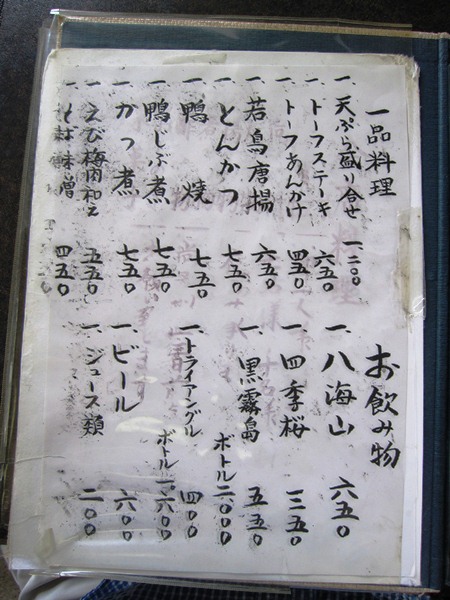 一品料理
一、天ぷら盛り合せ 一二〇〇
一、トーフステーキ 六五〇
一、トーフあんかけ 四五〇
一、若鳥唐揚 六五〇
一、とんかつ 七五〇
一、鴨焼 七五〇
一、鴨しぶ煮 七五〇
一、かつ煮 七五〇
一、えび梅肉和え 五五〇
一、そば味噌 四五〇
お飲み物
一、八海山 六五〇
一、四季桜 三五〇
一、黒霧島 五五〇
ボトル 二〇〇〇
一、トライアングル 四〇〇
ボトル 一六〇〇
一、ビール 六〇〇
一、ジュース類 二〇〇